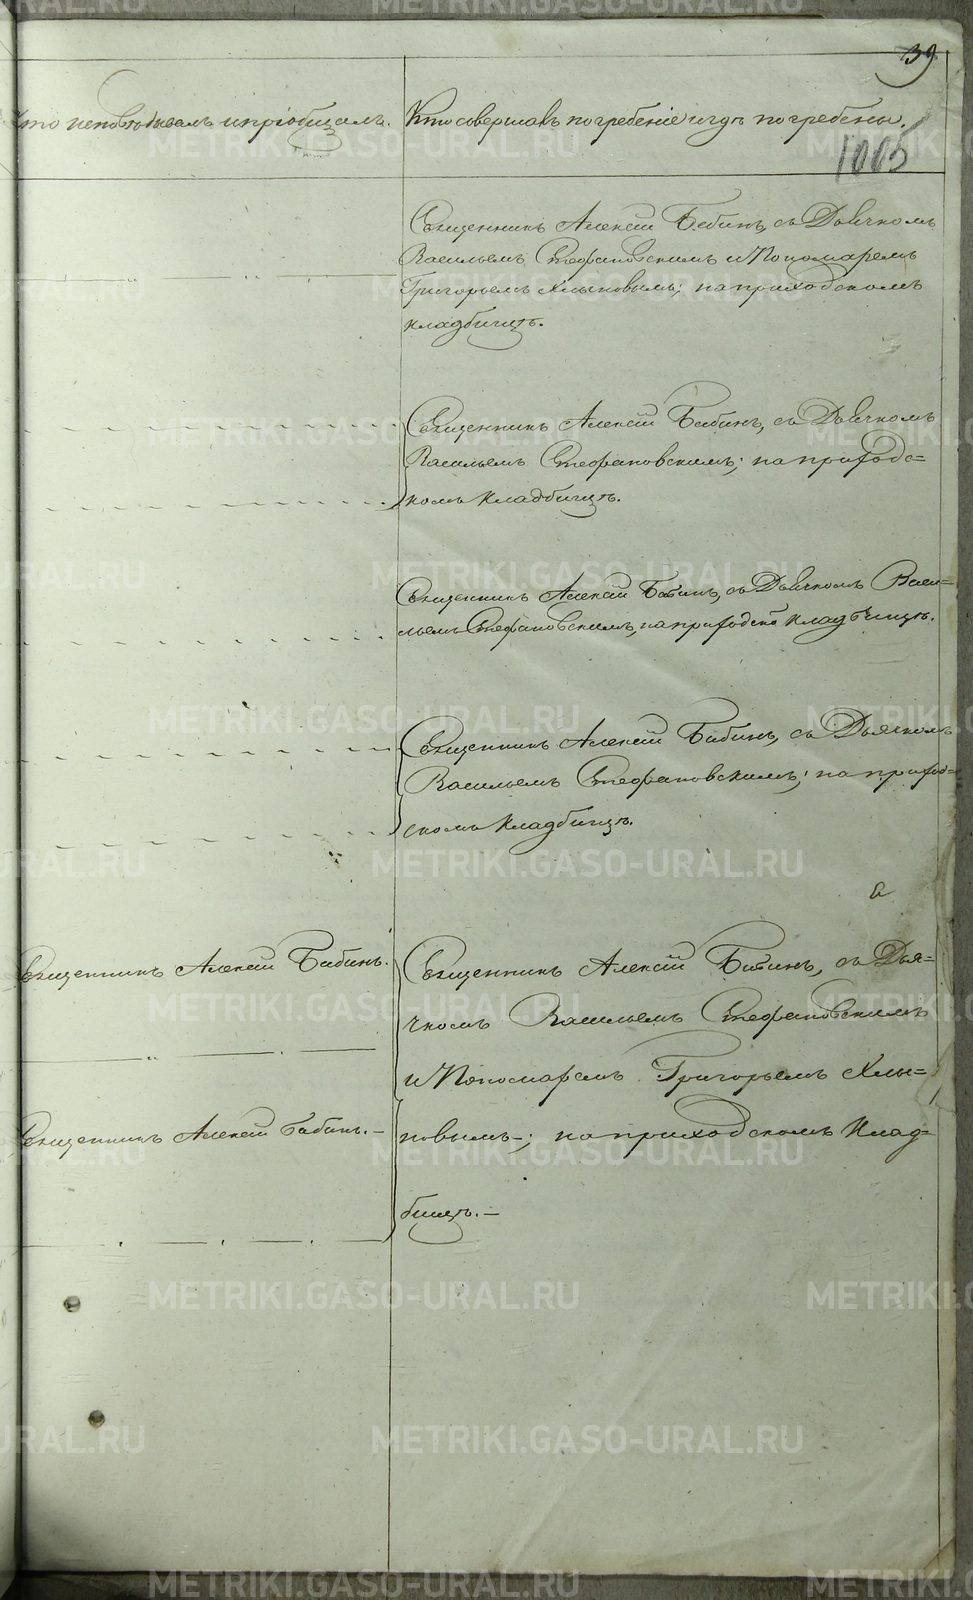 39
Кто исповѣдывалъ и пріобщалъ.
Кто совершалъ погребеніе и гдѣ погребены.
1005
Священникъ Алексѣй Бабинъ, съ Дьячкомъ
Васильемъ Стефановскимъ и Пономаремъ
Григорьемъ Хлыновымъ; на приходскомъ
кладбищѣ.
Священникъ Алексѣй Бабинъ, съ Дьячкомъ
Васильемъ Стефановскимъ; на приходс=
комъ кладбищѣ.
Священникъ Алексѣй Бабинъ, съ Дьячкомъ Васи=
льемъ Стефановскимъ, на приходско кладбищѣ.
Священникъ Алексѣй Бабинъ, съ Дьячкомъ
Васильемъ Стефановскимъ; на приход=
скомъ кладбищѣ.
Священникъ Алексѣй Бабинъ.
Священникъ Алексѣй Бабинъ, съ Дья=
чкомъ Васильемъ Стефановскимъ
и Пономаремъ Григорьемъ Хлы=
Священникъ Алексѣй Бабинъ.–
новымъ–; на приходскомъ клад=
бищѣ.–
METRIKI.GASO-URAL.RU